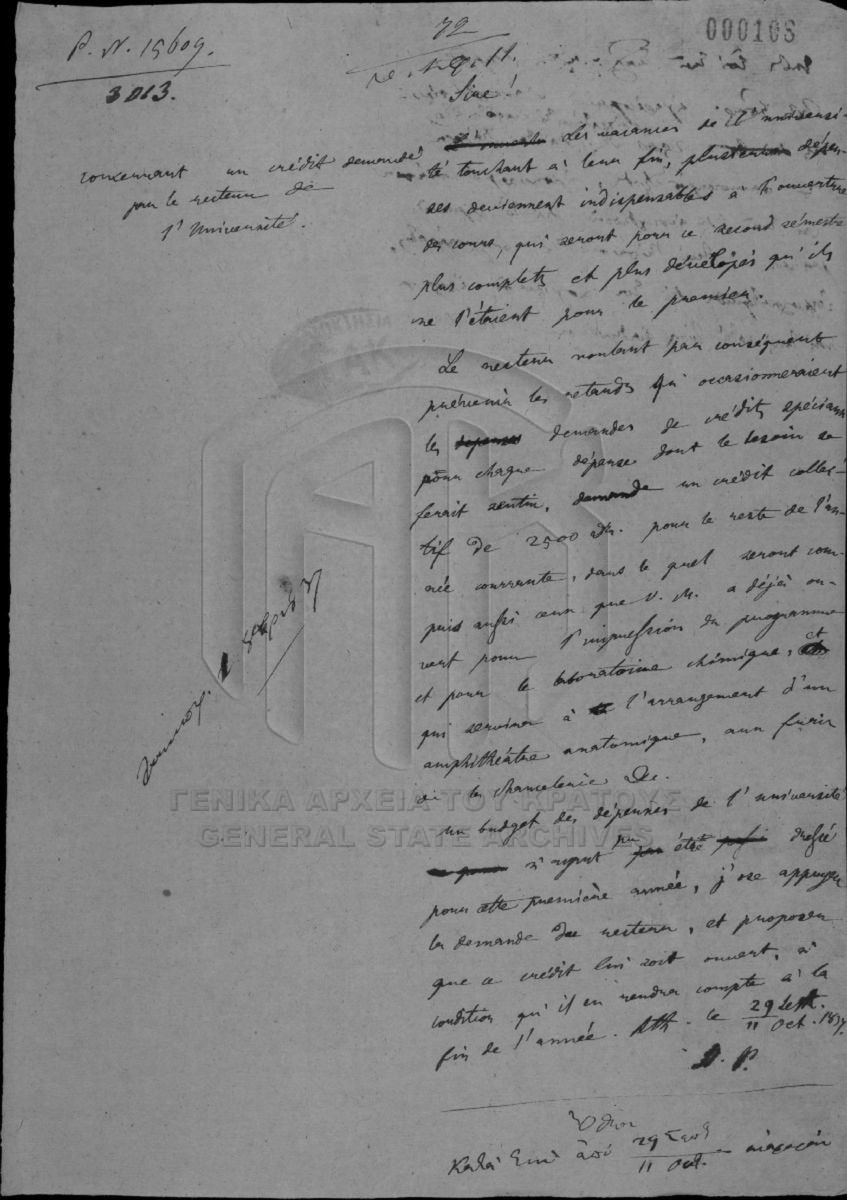 P. N. 15609.
3013.
72
000103
Sire!
concernant un crédit demandé
par le recteur de
l'Université.
Les vacances de l'Universi-
té touchant à leur fin, plusieurs dépen-
ses deviennent indispensables à l'ouverture
des cours, qui seront pour ce second sémestre
plus complets et plus développés qu'ils
ne l'étaient pour le premier.
Le recteur voulant par conséquent
prévenir les retards qu'occasionneraient
les depenses demandes de crédits spéciaux
pour chaque dépense dont le besoin se
ferait sentir, demande un crédit collec-
tif de 2500 dr. pour le reste de l'an-
née courrante, dans le quel seront com-
puis aussi ceux que V. M. a déjà ou-
vert pour l'impression du programme
et pour le laboratoire chimique, et
qui servira à l'arrangement d'un
amphithéâtre anatomique, aux
de la chancelerie &c.
un budget des dépenses de l'université
n'ayant pu être dressé
pour cette première année, j'ose appuyer
la demande du recteur, et proposer
que ce crédit lui soit ouvert, à
condition qu'il en rendra compte à la
fin de l'année. Ath. le 29 Sept. / 11 Oct. 1837.
Ὄθων
Κατὰ ἀπὸ 29 Σεπτ / 11 Oct.
ΓΕΝΙΚΑ ΑΡΧΕΙΑ ΤΟΥ ΚΡΑΤΟΥΣ
GENERAL STATE ARCHIVES